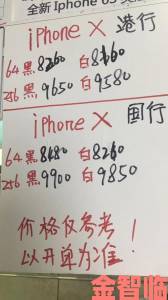 全新 Iphone
iPhone X 港行
64 黑8260 白8160
256 黑9650 白9580
iPhone X 国行
64 黑8480 白8260
256 黑9900 白9850
价格仅参考！
以开单为准！
金智临